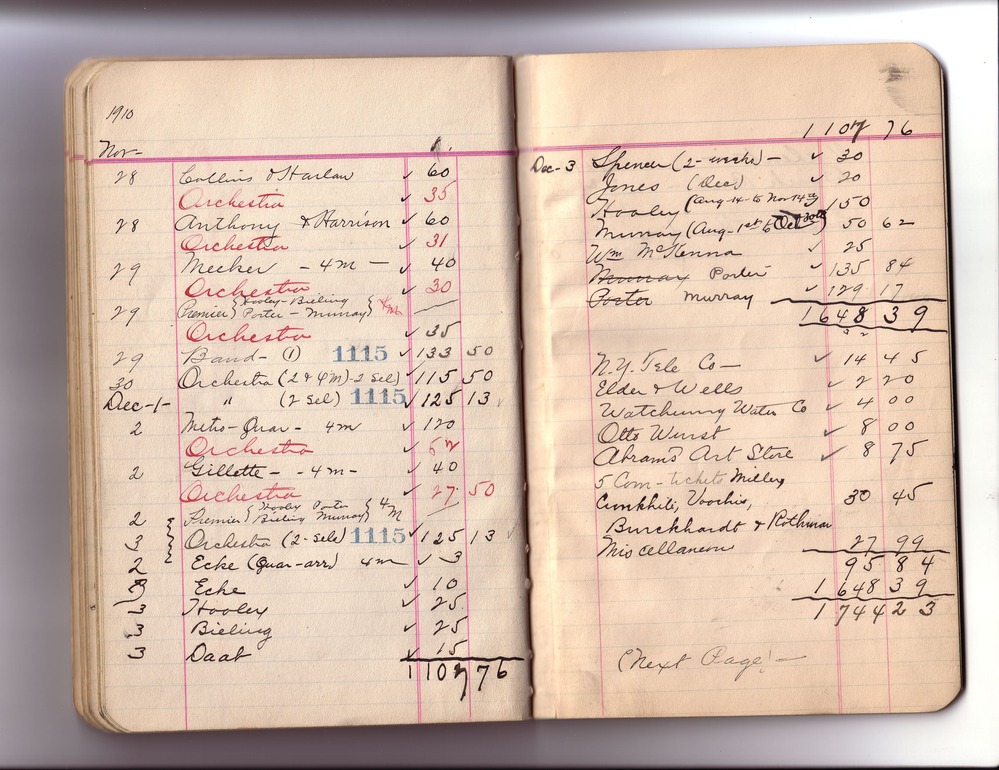 1910
Nov-
28 Collins & Harlan ✓ 60
Orchestra ✓ 35
28 Anthony & Harrison ✓ 60
Orchestra ✓ 31
29 Meeker - 4m - ✓ 40
Orchestra ✓ 30
29 Premier { Hooley - Bieling Porter - Murray } 4m
Orchestra ✓ 35
29 Band - (1) 1115 ✓ 133 50
30 Orchestra (2 & 4M) - 2 Sel) ✓ 115 50
Dec-1- " (2 Sel) 1115 ✓ 125 13
2 Metro-Quar- 4m ✓ 120
Orchestra ✓ 52
2 Gillette - -4m- ✓ 40
Orchestra ✓ 27 50
2 Premier { Hooley Porter Bieling Murray } 4M
3 Orchestra (2-Sels) 1115 ✓ 125 13
2 Ecke (Quar-arr) 4m ✓ 3
3 Ecke ✓ 10
3 Hooley ✓ 25
3 Bieling ✓ 25
3 Daab ✓ 15
1107 76
1107 76
Dec-3 Spencer (2-weeks) - ✓ 30
Jones (Dec) ✓ 20
Hooley (Aug-14-to Nov 14th) 150
Murray (Aug-1st to Oct 30th) 50 62
Wm McKenna ✓ 25
Murray Porter ✓ 135 84
Porter Murray ✓ 129 17
1648 39
N.Y. Tele Co - ✓ 14 45
Elder & Wells ✓ 2 20
Watchung Water Co ✓ 4 00
Otto Wurst ✓ 8 00
Abrams Art Store ✓ 8 75
5 Com-tickets Miller,
Cronkhite, Voorhis, 30 45
Burckhardt & Rothman
Miscellaneous 27 99
95 84
1648 39
1744 23
(Next Page) -